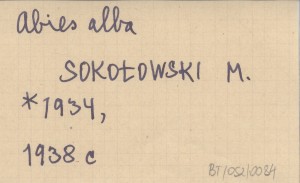 Abies alba
SOKOŁOWSKI M.
*1934,
1938 c
BT/052/0084